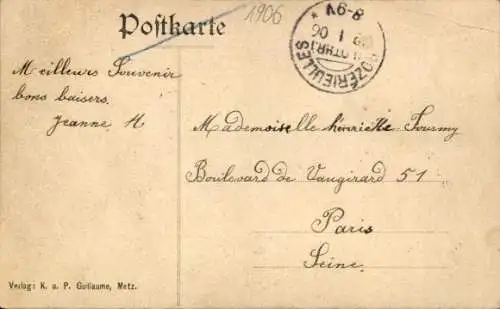 1906
Postkarte
Meilleurs Souvenir
bons baisers.
Jeanne H
ROZÉRIEULLES
1 06
8-9V
Mademoiselle henriette Fourmy
Boulevard de Vaugirard 51
Paris
Seine.
Verlag: K. u. P. Guillaume, Metz.